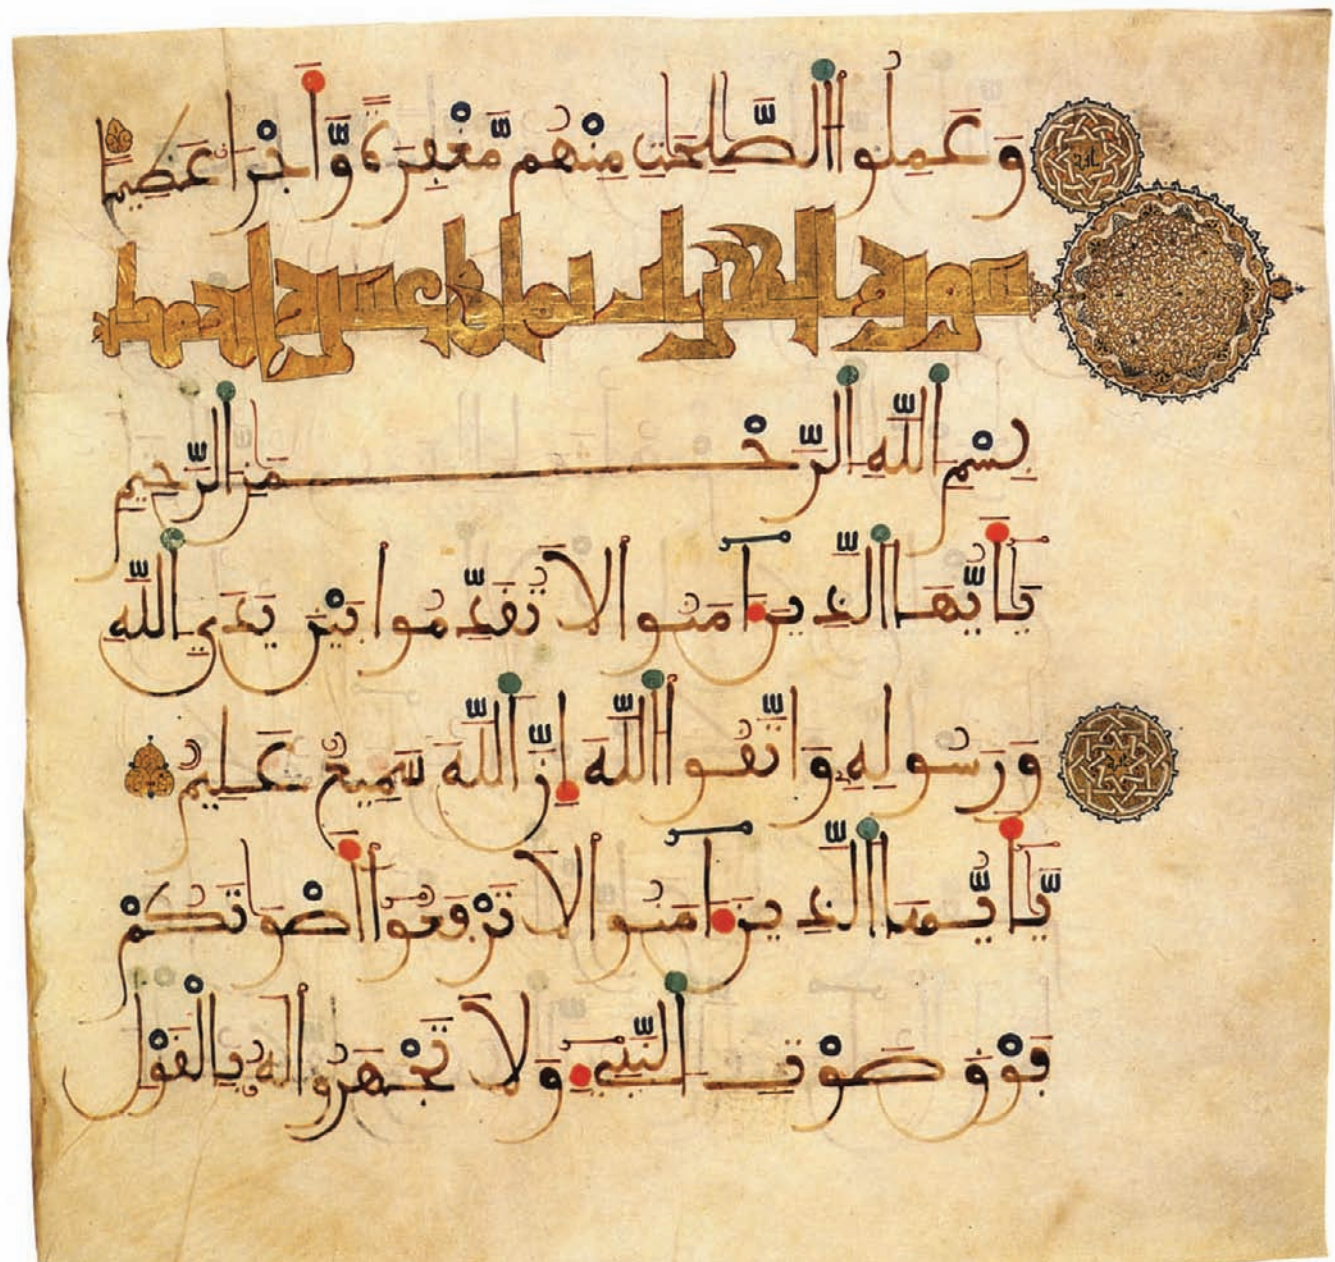 وَعَمِلُوا الصَّٰلِحَٰتِ مِنْهُم مَّغْفِرَةً وَأَجْراً عَظِيماً
سورة الحجرات ثماني عشرة آية
بِسْمِ اللَّهِ الرَّحْمَٰنِ الرَّحِيمِ
يَٰأَيُّهَا الَّذِينَ ءَامَنُوا لَا تُقَدِّمُوا بَيْنَ يَدَيِ اللَّهِ
وَرَسُولِهِ وَاتَّقُوا اللَّهَ إِنَّ اللَّهَ سَمِيعٌ عَلِيمٌ
يَٰأَيُّهَا الَّذِينَ ءَامَنُوا لَا تَرْفَعُوا أَصْوَٰتَكُمْ
فَوْقَ صَوْتِ النَّبِيءِ وَلَا تَجْهَرُوا لَهُ بِالْقَوْلِ